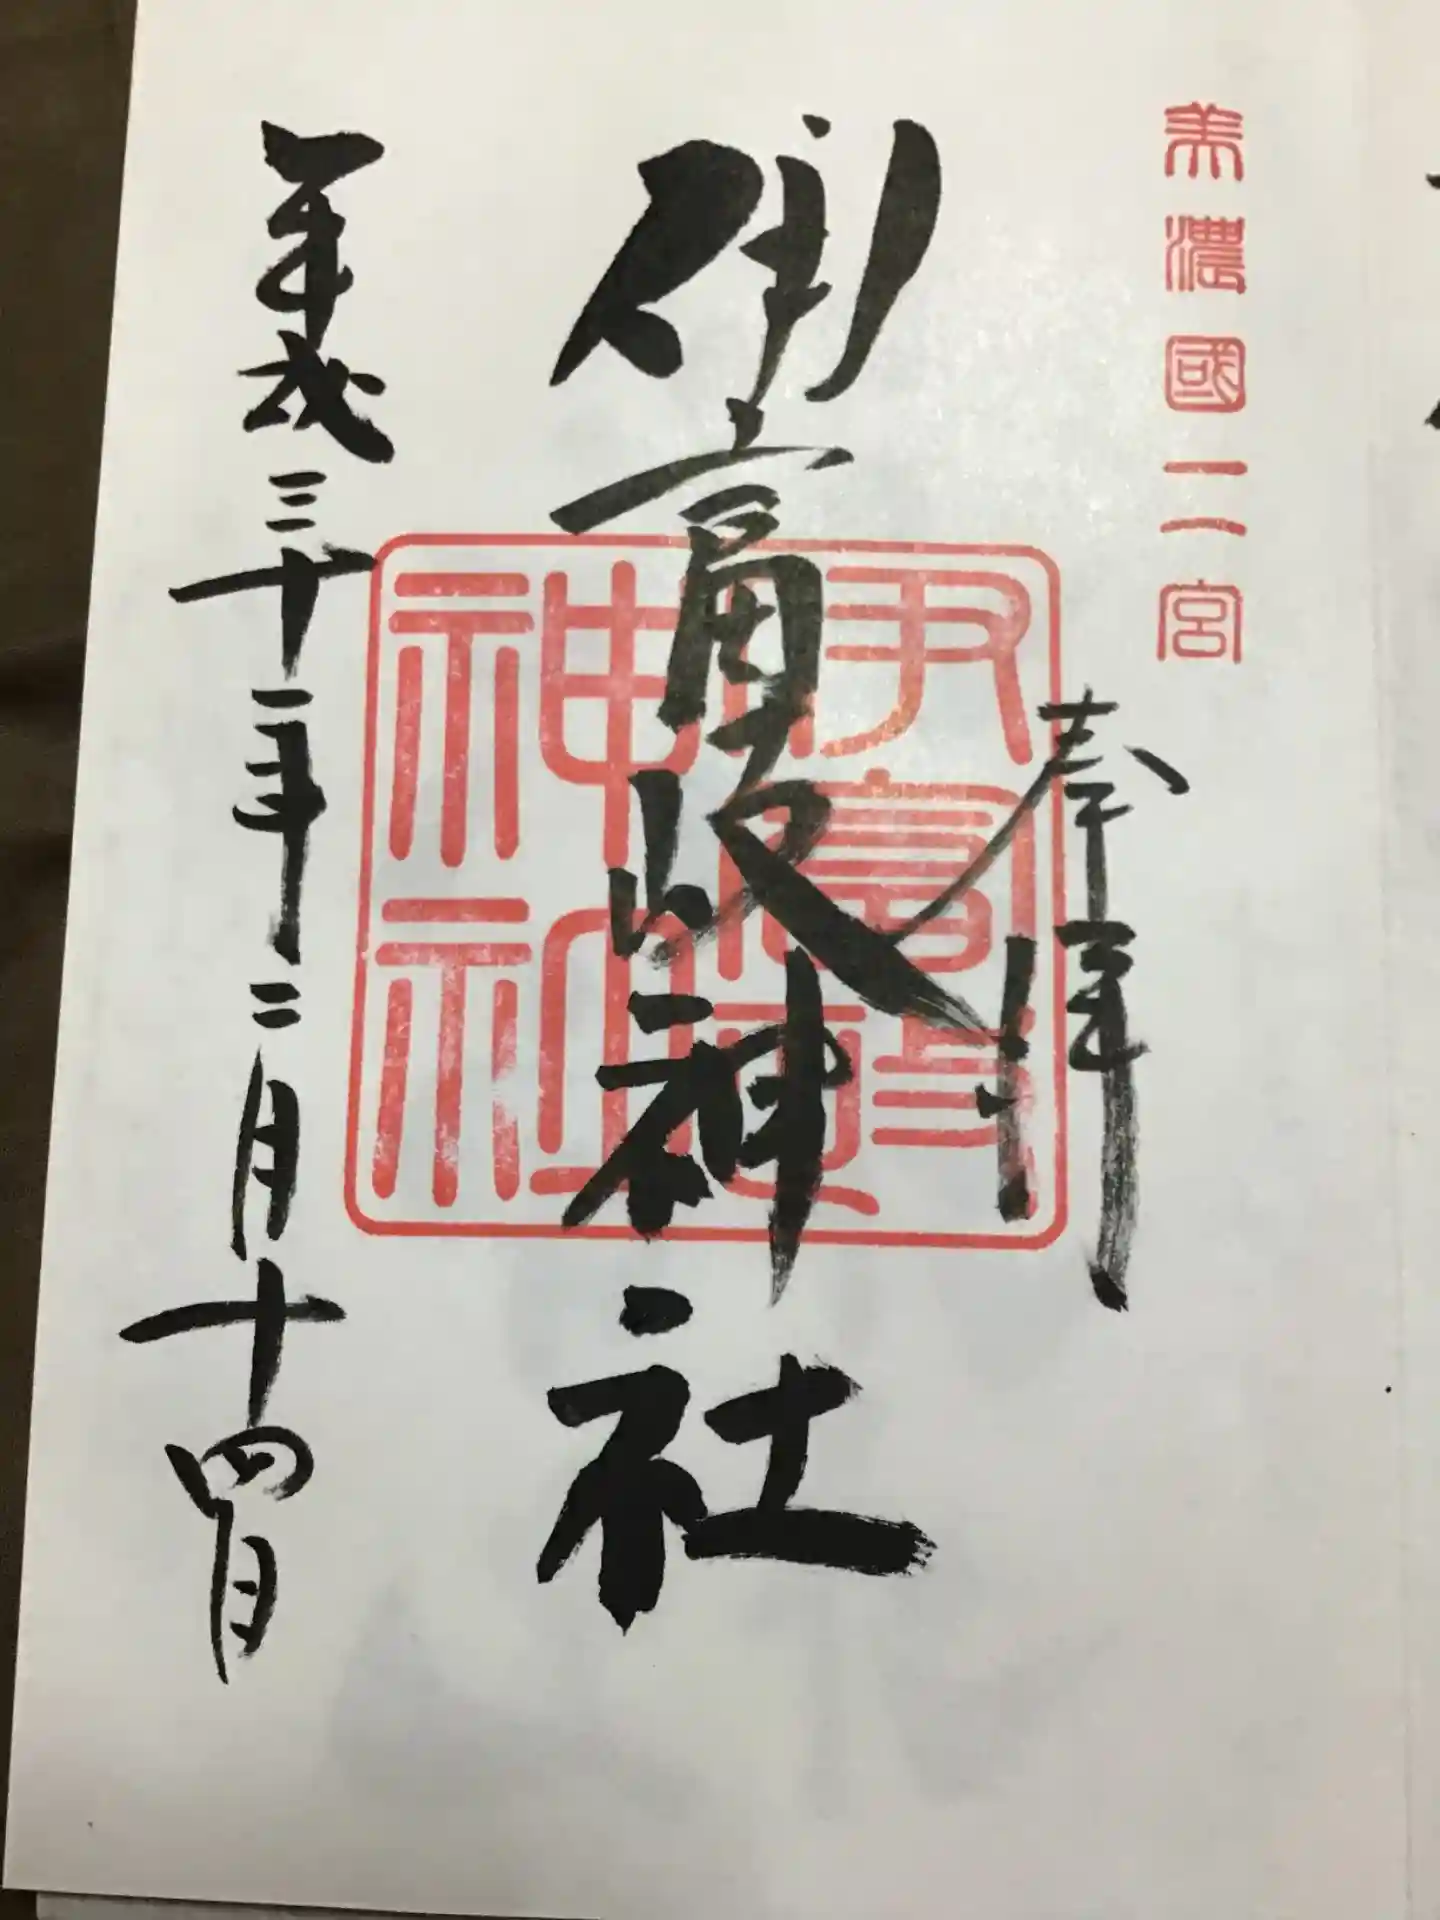 美濃國二宮
奉拝
伊富岐神社
伊富岐
神社
平成三十一年二月十四日